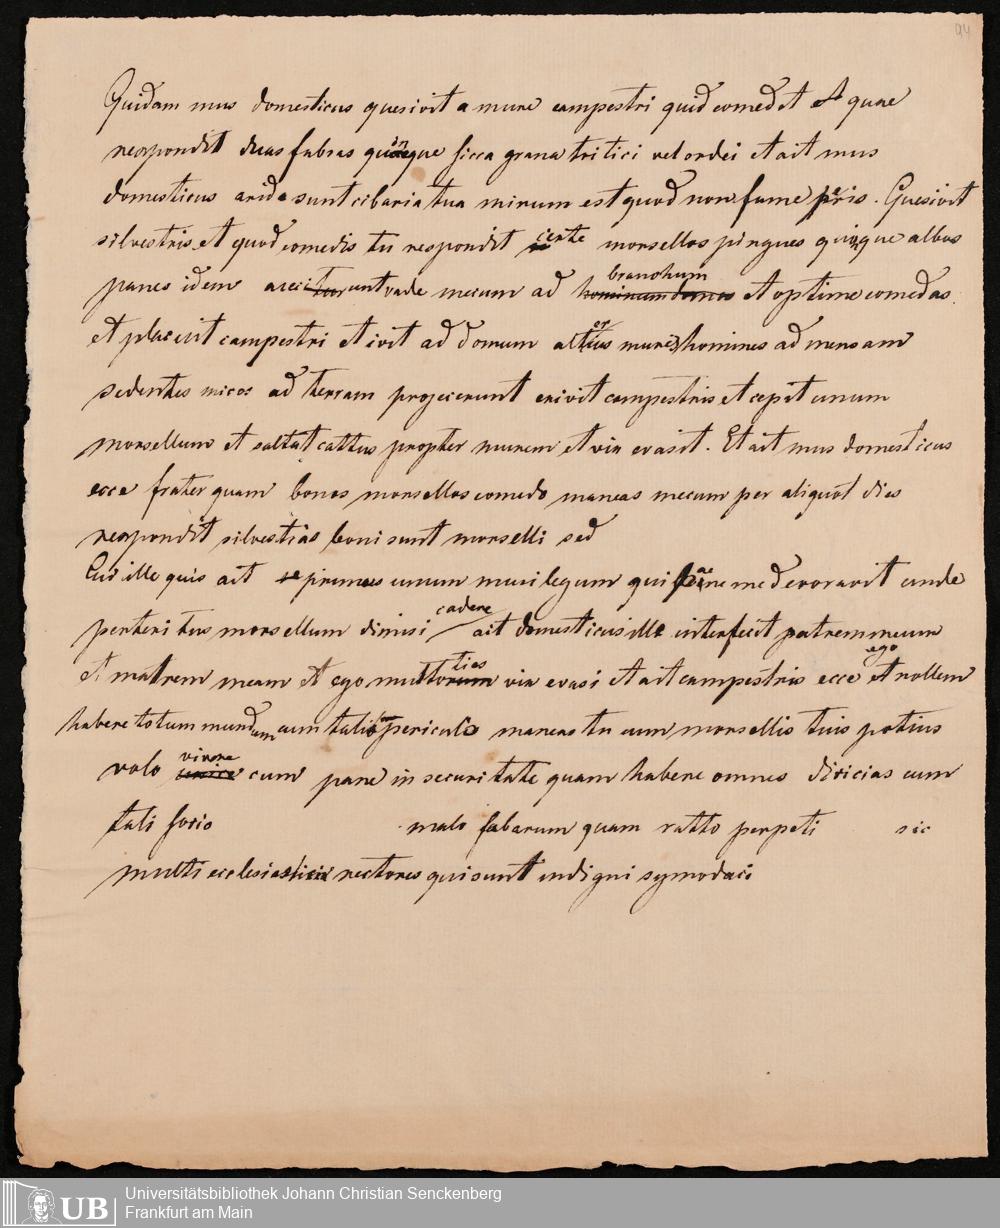 94
Quidam mus domesticus quesivit a mure campestri quid comedet At quae
respondit duas fabras quinque sicca grana tritici vel ordei et ait mus
domesticus arida sunt cibaria tua mirum est quod non fame peris. Quesivit
silvestris et quod comedis tu respondit certe morsellos pingues quinque albos
panes idem unt vade mecum ad branchum hominum domus et optime comedas.
et placuit campestri et ivit ad domum mures homines ad mensam
sedentes micos ad terram projecerunt exivit campestris et cepit unum
morsellum et saltat cattus propter murem et vix evasit. Et ait mus domesticus
ecce frater quam bonos morsellos comedo maneas mecum per aliquot dies
respondit silvestris boni sunt morselli sed
Cui ille quis ait unum musilegum qui me devoravit unde
perteritus morsellum dimisi cadere ait domesticus ille interfecit patrem meum
et matrem meam et ego multoties vix evasi et ait campestris ecce ego et nollem
habere totum mundum cum tali periculo maneas tu cum morsellis tuis potius
volo vivere cum pane in securitate quam habere omnes divicias cum
tali socio malo fabarum quam ratto perpeti sic
multi ecclesiasticii rectores qui sunt indigni symodaci
UB Universitätsbibliothek Johann Christian Senckenberg
Frankfurt am Main